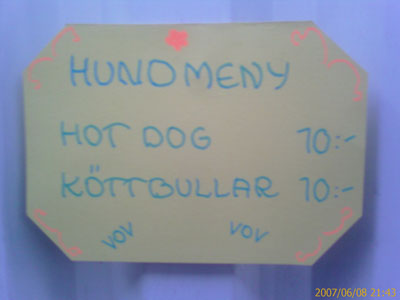 HUNDMENY
HOT DOG 10:-
KÖTTBULLAR 10:-
VOV VOV
2007/06/08 21:43